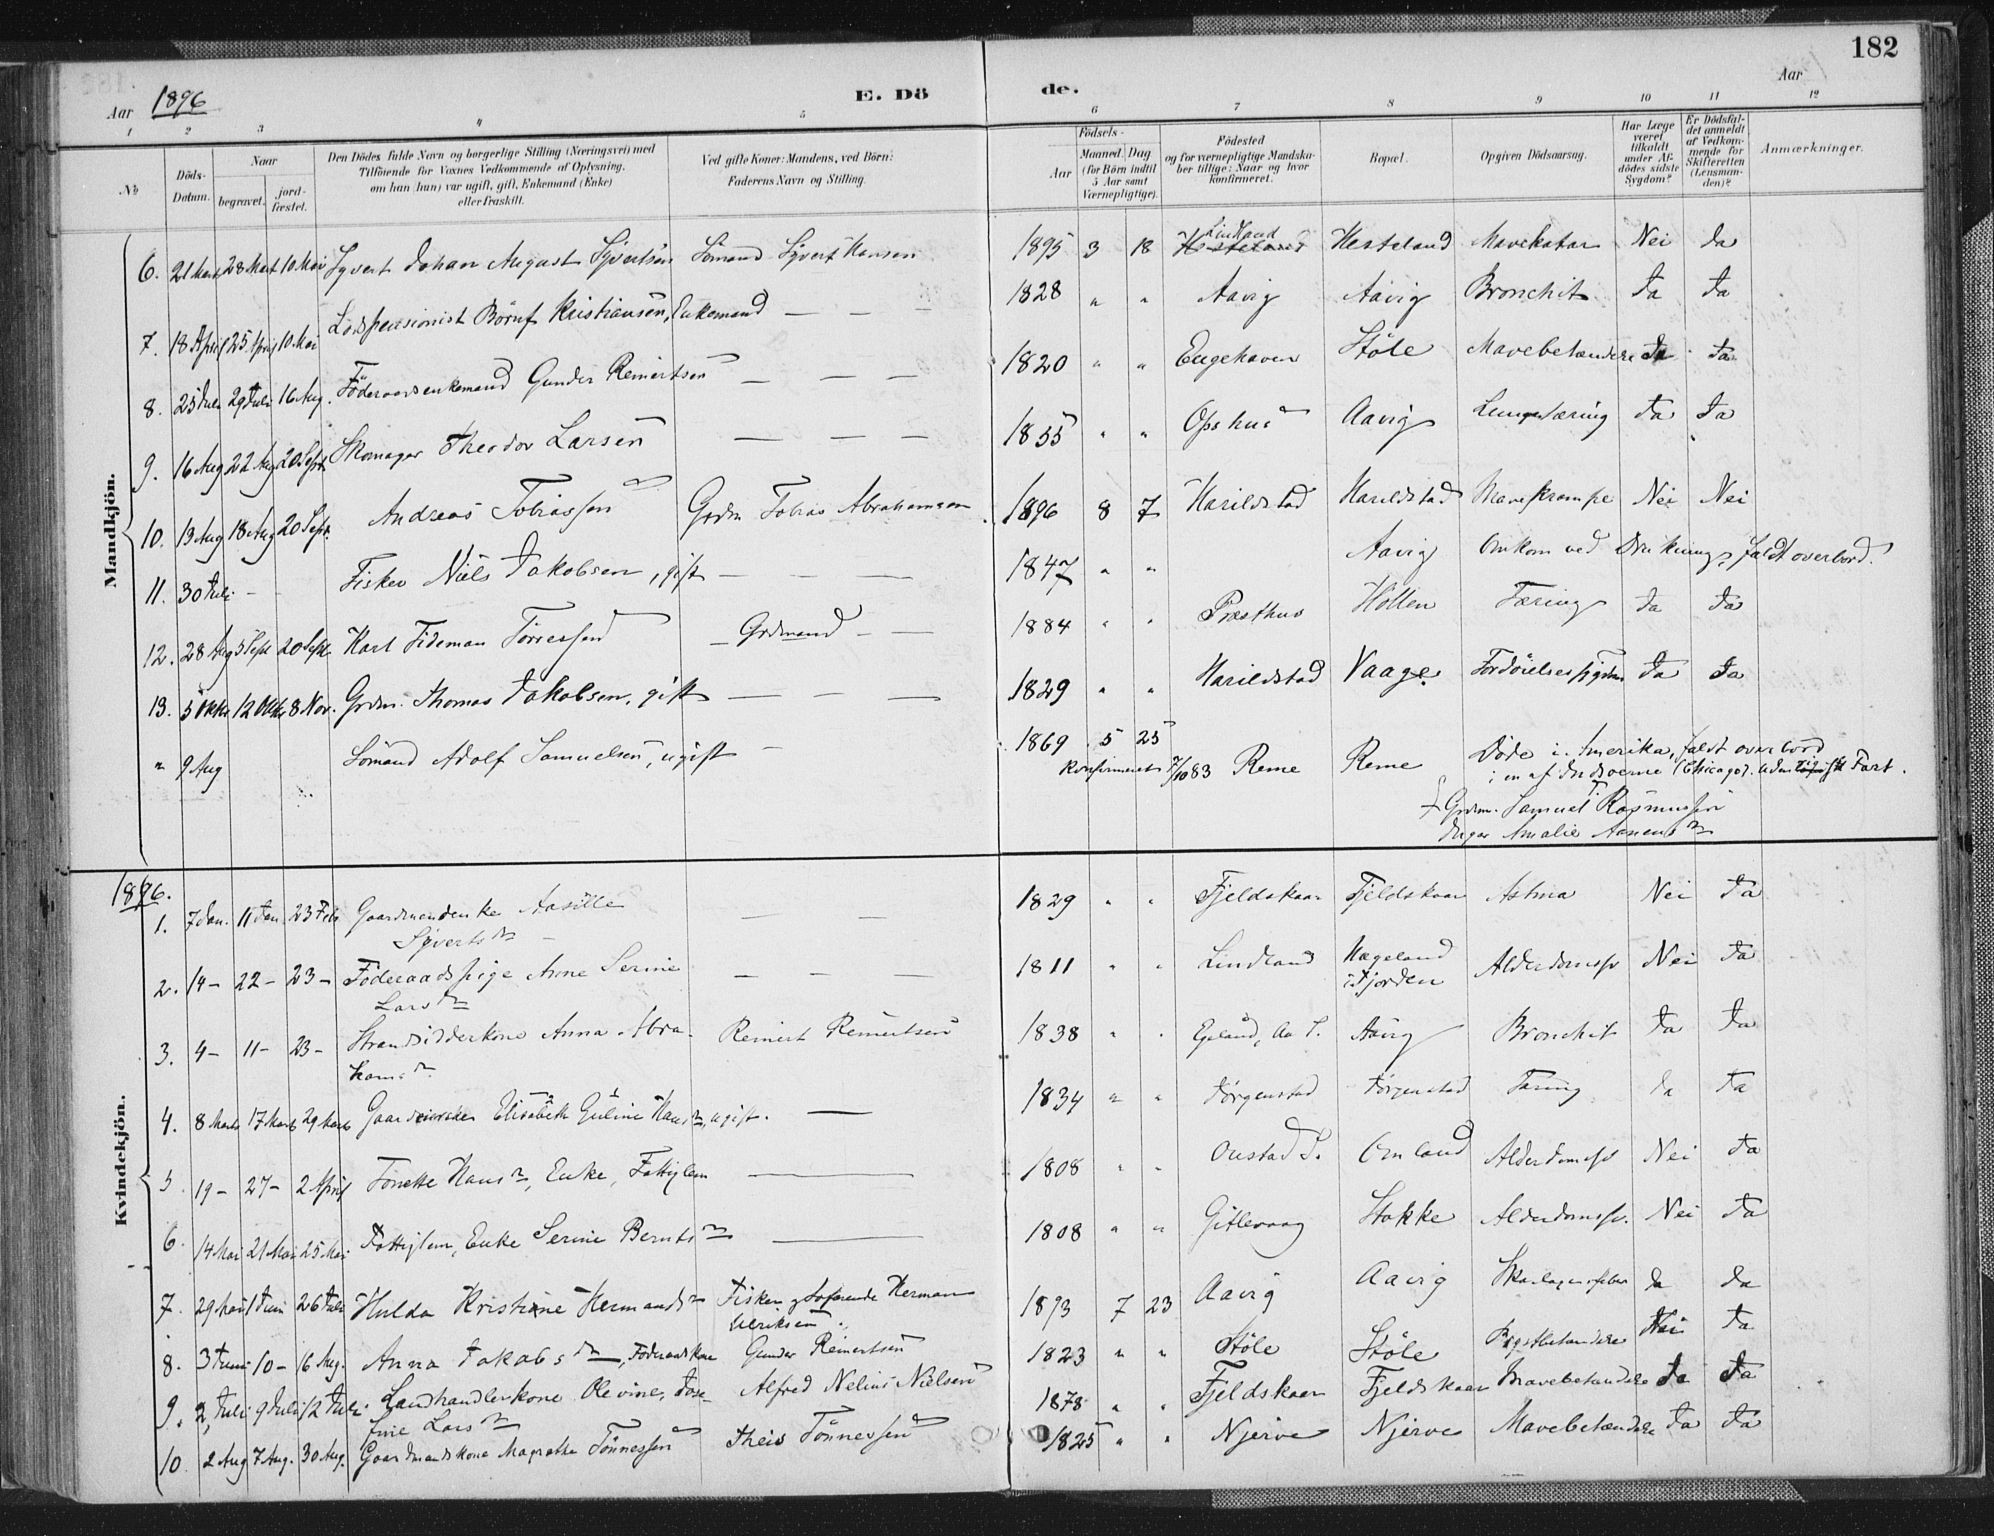 182
Aar 1896
E. Dö
de.
Aar
1 2 3 4 5 6 7 8 9 10 11 12
№
Döds-Datum.
Naar
begravet.
jord-fæstet.
Den Dödes fulde Navn og borgerlige Stilling (Næringsvei) med
Tilföiende for Voxnes Vedkommende af Oplysning,
om han (hun) var ugift, gift, Enkemand (Enke)
eller fraskilt.
Ved gifte Koner: Mandens, ved Börn:
Faderens Navn og Stilling.
Födsels-
Aar
Maaned. Dag
(for Börn indtil
5 Aar samt
Værnepligtige).
Födested
og for værnepligtige Mandska-
ber tillige: Naar og hvor
konfirmeret.
Bopæl.
Opgiven Dödsaarsag.
Har Læge
været
tilkaldt
under Af-
dödes sidste
Sygdom?
Er Dödsfal-
det anmeldt
af Vedkom-
mende for
Skifteretten
(Lensman-
den)?
Anmærkninger.
Mandkjön.
6. 21 Mart 28 Mart 10 Mai Syvert Johan August Syvertsen Sömand Syvert Hansen 1895 3 18 Lindland Hesteland Mavekatar Nei Ja
7. 18 April 25 April 10 Mai Lodspensionist Börnf Kristiansen, Enkemand — — — 1828 " " Aavig Aavig Bronchit Ja Ja
8. 25 Juli 29 Juli 16 Aug. Föderaadsenkemand Gunder Reinertsen — — — 1820 " " Eugehaven Stöle Mavebetændelse Ja Ja
9. 16 Aug 22 Aug 20 Sept Skomager Theodor Larsen — — — 1855 " " Opshus Aavig Lungetæring Ja Ja
10. 13 Aug 18 Aug 20 Sept. Andreas Tobiassen Grdm Tobias Abrahamsen 1896 8 7 Harildstad Harildstad Mavekrampe Nei Nei
11. 30 Juli - Fisker Niels Jakobsen, gift — — — 1847 " " Aavig Omkom ved Drukning, faldt overbord.
12. 28 Aug 5 Sept 20 Sept. Karl Tideman Törressen — Grdmand — — 1884 " " Præsthus Hollen Tæring Ja Ja
13. 5 Oktbr 12 Oktbr 8 Nov. Grdm. Thomas Jakobsen, gift — — — 1829 " " Harildstad Vaage Fordöielsessygdom Ja Ja
" 9 Aug Sömand Adolf Samuelsen, ugift — 1869 5 25 Reme Reme Döde i Amerika, faldt overbord
Konfirmeret 7/10 83 i en af Indsöerne (Chicago). Udenrigsk Fart.
Grdm. Samuel T. Rasmussen
Inger Amalie Aanensdr
Kvindekjön.
1896.
1. 7 Jan. 11 Jan 23 Febr Gaardmandenke Aasille — — 1829 " " Fjeldskaar Fjeldskaar Astma Nei Ja
Syvertsdr
2. 14 - 22 - 23 - Föderaadspige Anne Serine — — — 1811 " " Lindland Hægeland Alderdomssv Nei Ja
Larsdr i Fjorden
3. 4 - 11 - 23 - Strandsidderkone Anna Abra- Reinert Reinertsen 1838 " " Egeland, Aa S. Aavig Bronchit Ja Ja
hamsdr.
4. 8 Marts 17 Marts 29 Marts Gaardeierske Elisabeth Guline Hansdr, ugift. — 1834 " " Jörgenstad Jörgenstad Tæring Ja Ja
5. 19 - 27 - 2 April Tonette Hansdr, Enke, Fattiglem — 1808 " " Oustad S. Omland Alderdomssv Nei Ja
6. 14 Mai 21 Mai 25 Mai Fattiglem, Enke Serine Berntsdr — 1808 " " Gitlevaag Stokke Alderdomssv. Nei Ja
7. 29 Mai 1 Juni 26 Juli Hulda Kristine Hermandsdr Fisker og Sofarende Herman 1893 7 23 Aavig Aavig Skarlagensfeber Ja Ja
Ulriksen
8. 3 Juni 10 - 16 Aug. Anna Jakobsdr, Föderaadskone Gunder Reinertsen 1823 " " Stöle Stöle Brystbetændelse Nei Ja
9. 2 Juli 9 Juli 12 Juli Landhandlerkone Olevine, Jose- Alfred Nelius Nielsen 1878 " " Fjeldskaar Fjeldskaar Mavebetændelse Ja Ja
fine Larsdr
10. 2 Aug 7 Aug. 30 Aug. Gaardmandskone Magrethe Tönnessen Theis Tönnessen 1825 " " Njerve Njerve Mavebetændelse Ja Ja